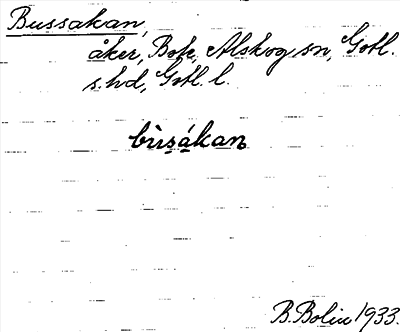 Bussakan,
åker, Boks, Alskog sn, Gotl.
s. hd, Gotl. l.
bùsákan
B. Bolin 1933.